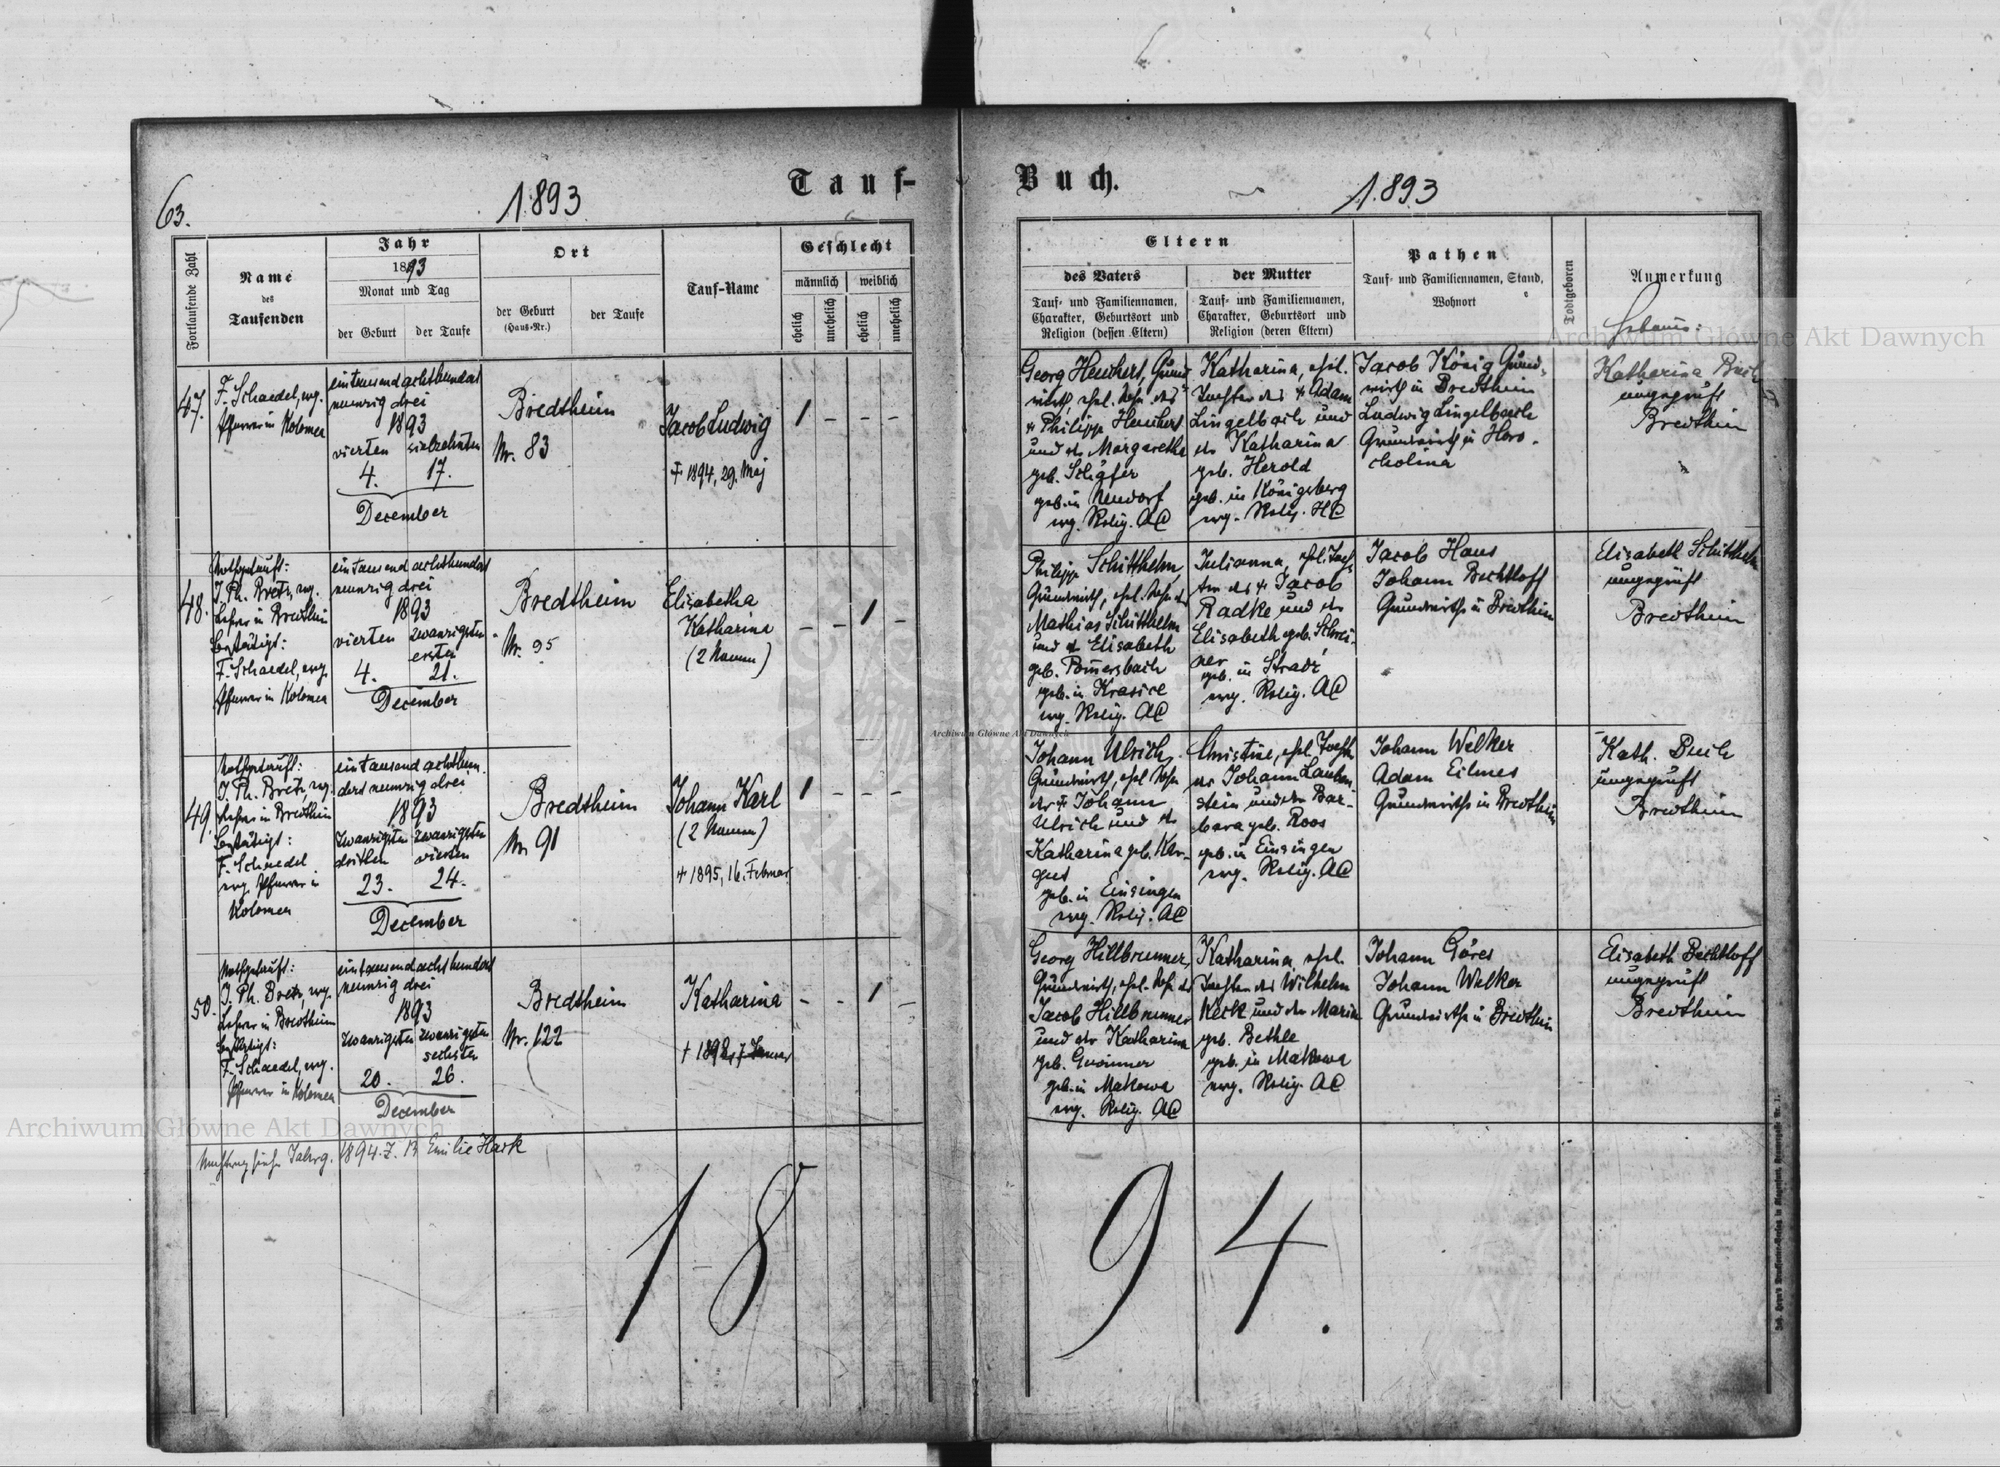 63.
1893
Tauf-
Buch.
1893
Fortlaufende Zahl
Name
des
Taufenden
Jahr
1893
Monat und Tag
der Geburt
der Taufe
Ort
der Geburt
(Haus-Nr.)
der Taufe
Tauf-Name
Geschlecht
männlich
weiblich
ehelich
unehelich
ehelich
unehelich
Eltern
des Vaters
Tauf- und Familiennamen,
Charakter, Geburtsort und
Religion (dessen Eltern)
der Mutter
Tauf- und Familiennamen,
Charakter, Geburtsort und
Religion (deren Eltern)
Pathen
Tauf- und Familiennamen, Stand,
Wohnort
Todtgeboren
Anmerkung
47.
F. Schaedel, evg.
Pfarrer in Kolomea
eintausend achthundert
neunzig drei
1893
vierten siebzehnten
4. 17.
December
Bredtheim
Nr. 83
Jacob Ludwig
† 1894, 29. Maj
1 - - -
Georg Heuchert, Grund-
wirth, ehel. Sohn des
† Philipp Heuchert
und der Margaretha
geb. Schäfer
geb. in Neudorf
evg. Relig. AC
Katharina, ehel.
Tochter des † Adam
Lingelbach und
der Katharina
geb. Herold
geb. in Königsberg
evg. Relig. HC
Jacob König Grund-
wirth in Bredtheim
Ludwig Lingelbach
Grundwirth in Horo-
cholina
Hebame:
Katharina Buch
ungeprüft
Bredtheim
48.
Nothgetauft:
J. Ph. Bretz, evg.
Lehrer in Bredtheim
bestätigt:
F. Schaedel, evg.
Pfarrer in Kolomea
eintausend achthundert
neunzig drei
1893
vierten zwanzigsten
ersten
4. 21.
December
Bredtheim
Nr. 95
Elisabetha
Katharina
(2 Namen)
- - 1 -
Philipp Schitthelm,
Grundwirth, ehel. Sohn des
Mathias Schitthelm
und der Elisabeth
geb.
geb. in Krasice
evg. Relig. AC
Julianna, ehel. Toch-
ter des † Jacob
Radke und der
Elisabeth geb. Schrei-
ner
geb. in
evg. Relig. AC
Jacob Haus
Johann Bechtloff
Grundwirthe in Bredtheim
Elisabeth Schitthelm
ungeprüft
Bredtheim
49.
Nothgetauft:
J. Ph. Bretz, evg.
Lehrer in Bredtheim
bestätigt:
F. Schaedel
evg. Pfarrer in
Kolomea
eintausend achthun-
dert neunzig drei
1893
zwanzigsten zwanzigsten
dritten vierten
23. 24.
December
Bredtheim
Nr. 91
Johann Karl
(2 Namen)
† 1895, 16. Februar
1 - - -
Johann Ulrich,
Grundwirth, ehel. Sohn
des † Johann
Ulrich und der
Katharina geb. Kar-
ges
geb. in Einsingen
evg. Relig. AC
Christine, ehel. Tochter
des Johann Lauten-
stein und der Bar-
bara geb. Roos
geb. in Einsingen
evg. Relig. AC
Johann Welker
Adam Eilmes
Grundwirthe in Bredtheim
Kath. Buch
ungeprüft
Bredtheim
50.
Nothgetauft:
J. Ph. Bretz, evg.
Lehrer in Bredtheim
bestätigt:
F. Schaedel, evg.
Pfarrer in Kolomea
eintausend achthundert
neunzig drei
1893
zwanzigsten zwanzigsten
sechsten
20. 26.
December
Bredtheim
Nr. 122
Katharina
- - 1 -
Georg Hillbrunner,
Grundwirth, ehel. Sohn des
Jacob Hillbrunner
und der Katharina
geb. Gwinner
geb. in Makowa
evg. Relig. AC
Katharina, ehel.
Tochter des Wilhelm
Keck und der Maria
geb. Bethle
geb. in Makowa
evg. Relig. AC
Johann Göres
Johann Welker
Grundwirthe in Bredtheim
Elisabeth Bechtloff
ungeprüft
Bredtheim
Nachtrag siehe Jahrg. 1894. Z. 13 Emilie Hark
1894.
Archiwum Główne Akt Dawnych
Archiwum Główne Akt Dawnych
Archiwum Główne Akt Dawnych